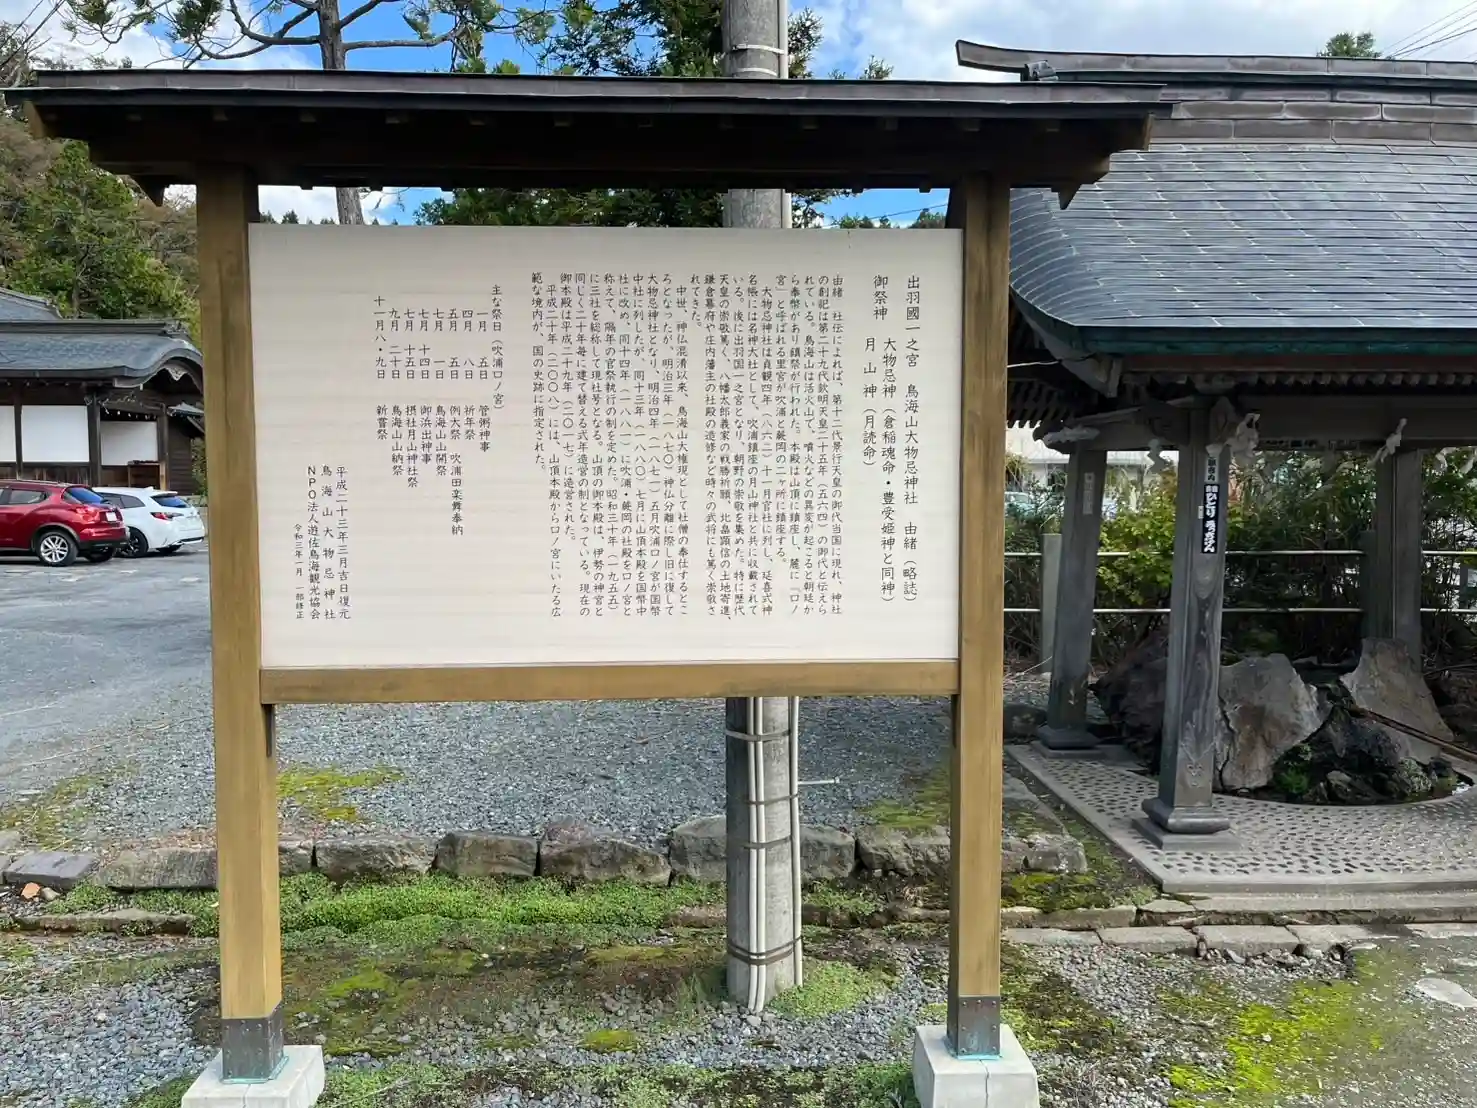 出羽國一之宮　鳥海山大物忌神社　由緒（略誌）
御祭神　大物忌神（倉稲魂命・豊受姫神と同神）
月山神（月読命）
由緒　社伝によれば、第十二代景行天皇の御代当国に現れ、神社
の創祀は第二十九代欽明天皇二十五年（五六四）の御代と伝えら
れている。鳥海山は活火山で、噴火などの異変が起こると朝廷か
ら奉幣があり鎮祭が行われた。本殿は山頂に鎮座し、麓に「口ノ
宮」と呼ばれる里宮が吹浦と蕨岡の二ヶ所に鎮座する。
大物忌神社は貞観四年（八六二）十一月官社に列し、延喜式神
名帳には名神大社として、吹浦鎮座の月山神社と共に収載されて
いる。後に出羽国一之宮となり、朝野の崇敬を集めた。特に歴代
天皇の崇敬篤く、八幡太郎義家の戦勝祈願、北畠顕信の土地寄進、
鎌倉幕府や庄内藩主の社殿の造修など時々の武将にも篤く崇敬さ
れてきた。
中世、神仏混淆以来、鳥海山大権現として社僧の奉仕するとこ
ろとなったが、明治三年（一八七〇）神仏分離に際し旧に復して
大物忌神社となり、明治四年（一八七一）五月吹浦口ノ宮が国幣
中社に列したが、同十三年（一八八〇）七月に山頂本殿を国幣中
社に改め、同十四年（一八八一）に吹浦・蕨岡の社殿を口ノ宮と
称えて、隔年の官祭執行の制を定めた。昭和三十年（一九五五）
に三社を総称して現社号となる。山頂の御本殿は、伊勢の神宮と
同じく二十年毎に建て替える式年造営の制となっている。現在の
御本殿は平成二十九年（二〇一七）に造営された。
平成二十年（二〇〇八）には、山頂本殿から口ノ宮にいたる広
範な境内が、国の史跡に指定された。
主な祭日（吹浦口ノ宮）
一月　五日　管粥神事
四月　八日　祈年祭
五月　五日　例大祭　吹浦田楽舞奉納
七月　一日　鳥海山山開祭
七月　十四日　御浜出神事
七月　十五日　摂社月山神社祭
九月　二十日　鳥海山山納祭
十一月八・九日　新嘗祭
平成二十三年三月吉日復元
鳥海山大物忌神社
NPO法人遊佐鳥海観光協会
令和三年一月　一部修正